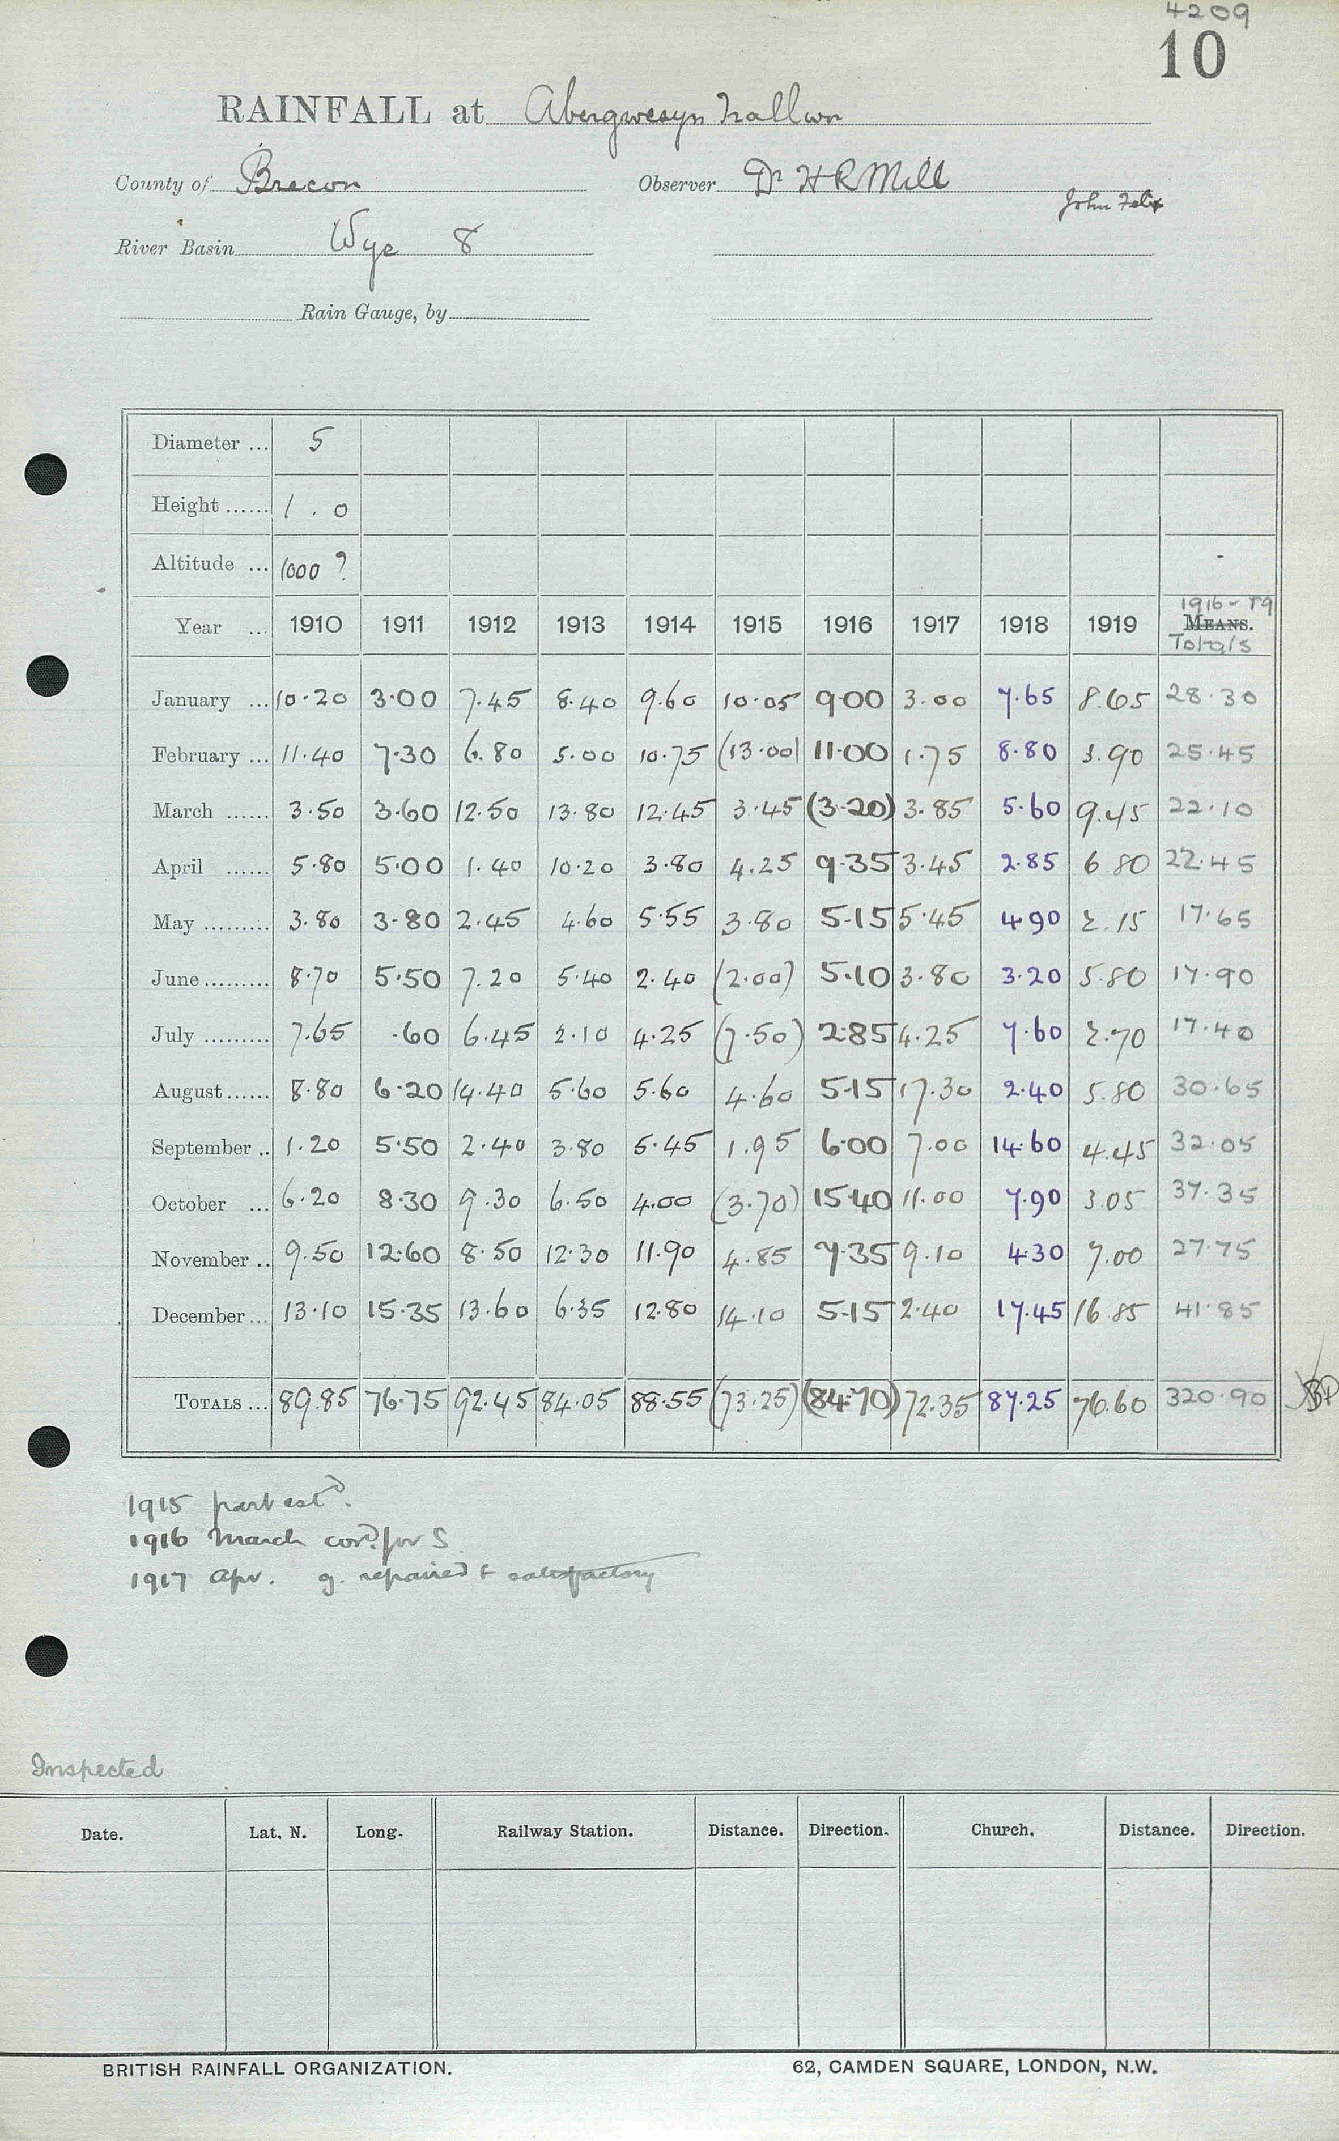 4209
10
RAINFALL at Abergwesyn Nallwn
County of Brecon Observer Dr H R Mill
John
River Basin Wye 8
Rain Gauge, by
Diameter ... 5
Height ...... 1 . 0
Altitude ... 1000 ?
1916-19
Year ... 1910 1911 1912 1913 1914 1915 1916 1917 1918 1919 MEANS.
Totals
January ... 10.20 3.00 7.45 8.40 9.60 10.05 9.00 3.00 7.65 8.65 28.30
February ... 11.40 7.30 6.80 5.00 10.75 (13.00) 11.00 1.75 8.80 3.90 25.45
March ...... 3.50 3.60 12.50 13.80 12.45 3.45 (3.20) 3.85 5.60 9.45 22.10
April ...... 5.80 5.00 1.40 10.20 3.80 4.25 9.35 3.45 2.85 6.80 22.45
May ......... 3.80 3.80 2.45 4.60 5.55 3.80 5.15 5.45 4.90 2.15 17.65
June ......... 8.70 5.50 7.20 5.40 2.40 (2.00) 5.10 3.80 3.20 5.80 17.90
July ......... 7.65 .60 6.45 2.10 4.25 (7.50) 2.85 4.25 7.60 2.70 17.40
August ...... 8.80 6.20 14.40 5.60 5.60 4.60 5.15 17.30 2.40 5.80 30.65
September .. 1.20 5.50 2.40 3.80 5.45 1.95 6.00 7.00 14.60 4.45 32.05
October ... 6.20 8.30 9.30 6.50 4.00 (3.70) 15.40 11.00 7.90 3.05 37.35
November .. 9.50 12.60 8.50 12.30 11.90 4.85 7.35 9.10 4.30 7.00 27.75
December ... 13.10 15.35 13.60 6.35 12.80 14.10 5.15 2.40 17.45 16.85 41.85
TOTALS ... 89.85 76.75 92.45 84.05 88.55 (73.25) (84.70) 72.35 87.25 76.60 320.90
1915 part estd.
1916 March cord. for S.
1917 Apr. g. repaired & satisfactory
Inspected
Date. Lat. N. Long. Railway Station. Distance. Direction. Church. Distance. Direction.
BRITISH RAINFALL ORGANIZATION. 62, CAMDEN SQUARE, LONDON, N.W.